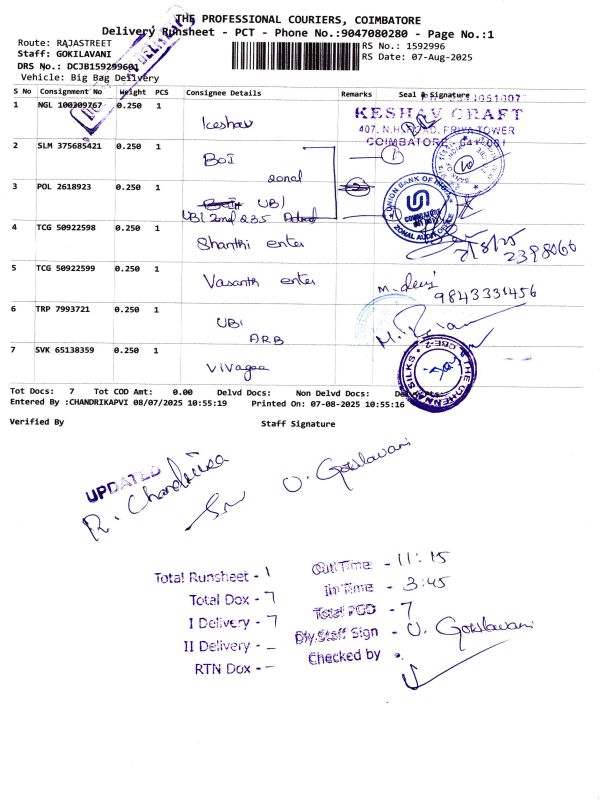 THE PROFESSIONAL COURIERS, COIMBATORE
Delivery Runsheet - PCT - Phone No.:9047080280 - Page No.:1
Route: RAJASTREET
RS No.: 1592996
Staff: GOKILAVANI
RS Date: 07-Aug-2025
DRS No.: DCJB159299601
Vehicle: Big Bag Delivery
S No Consignment No Weight PCS Consignee Details Remarks Seal & Signature
1 NGL 100309767 0.250 1 Keshav
KESHAV CRAFT
407, N.H. ROAD, PRIYA TOWER
COIMBATORE, 641 001
2 SLM 375685421 0.250 1 BOI
zonal
1
3 POL 2618923 0.250 1 UBI
UBI 2nd 235
2
UNION BANK OF INDIA
COIMBATORE
ZONAL AUDIT OFFICE
4 TCG 50922598 0.250 1 Shanthi enter
7/8/25
2398066
5 TCG 50922599 0.250 1 Vasanth enter
M. devi
9843331456
6 TRP 7993721 0.250 1 UBI
ARB
7 SVK 65138359 0.250 1 Vivagaa
THE CHENNAI SILKS
CBE-2
Tot Docs: 7 Tot COD Amt: 0.00 Delvd Docs: Non Delvd Docs:
Entered By :CHANDRIKAPVI 08/07/2025 10:55:19 Printed On: 07-08-2025 10:55:16
Verified By Staff Signature
UPDATED
R. Chandrika
U. Gokilavani
Total Runsheet - 1
Out Time - 11:15
Total Dox - 7
In Time - 3:45
I Delivery - 7
Total POD - 7
II Delivery - -
Dly.Staff Sign - U. Gokilavani
RTN Dox - -
Checked by